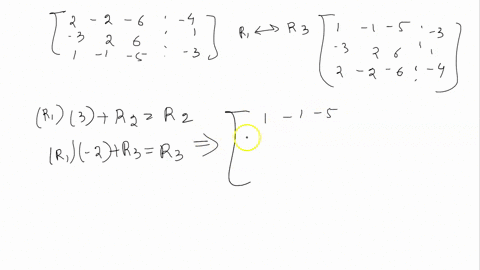 2 -2 -6 : -4
-3 2 6 : 1
1 -1 -5 : -3
R1 ↔ R3
1 -1 -5 : -3
-3 2 6 : 1
2 -2 -6 : -4
(R1)(3)+R2=R2
(R1)(-2)+R3=R3 ⇒
1 -1 -5